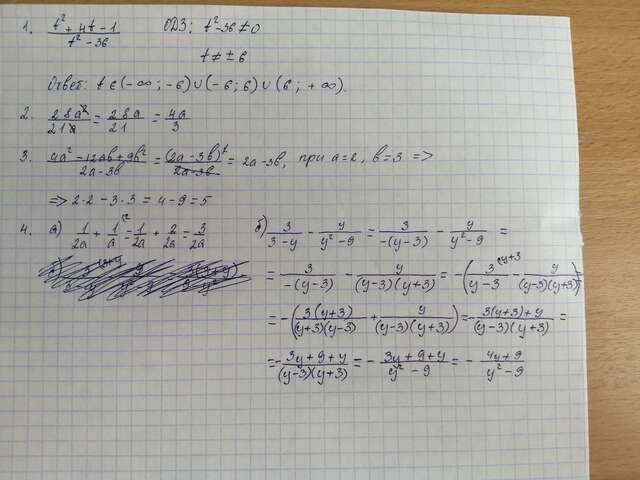 1. (t² + 4t - 1)/(t² - 36) ОДЗ: t² - 36 ≠ 0
t ≠ ± 6
Ответ: t ∈ (-∞; -6) ∪ (-6; 6) ∪ (6; +∞).
2. 28a²/21a = 28a/21 = 4a/3
3. (4a² - 12ab + 9b²)/(2a - 3b) = (2a - 3b)²/(2a - 3b) = 2a - 3b, при a = 2, b = 3 =>
=> 2·2 - 3·3 = 4 - 9 = 5
4. а) 1/2a + 1/a^(·2) = 1/2a + 2/2a = 3/2a б) 3/(3 - y) - y/(y² - 9) = 3/(-(y - 3)) - y/(y² - 9) =
= 3/(-(y - 3)) - y/((y - 3)(y + 3)) = -(3/(y - 3)^(y + 3) - y/((y - 3)(y + 3))) =
= -(3(y + 3)/((y + 3)(y - 3)) + y/((y - 3)(y + 3))) = -(3(y + 3) + y)/((y - 3)(y + 3)) =
= -(3y + 9 + y)/((y - 3)(y + 3)) = - (3y + 9 + y)/(y² - 9) = - (4y + 9)/(y² - 9)